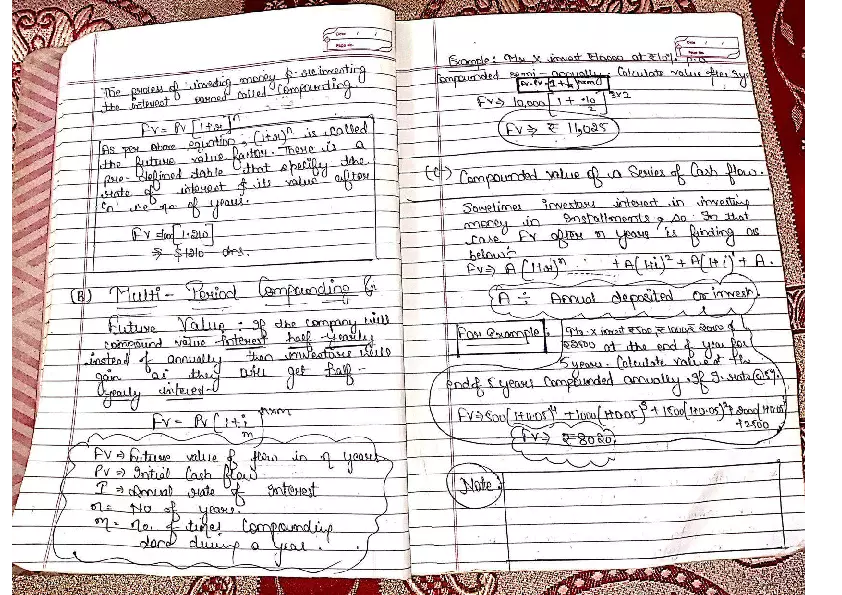 Date
Page No.
The process of investing money & reinvesting
the interest earned called Compounding
FV = PV [1+r]^n
As per above equation, (1+r)^n is called
the future value factor. There is a
pre-defined table that specify the
rate of interest & its value after
'n' no of years.
FV = 1000 [1.210]
⇒ $1210 ans.
(B) Multi-Period Compounding
Future Value: If the company will
compound value interest half yearly
instead of annually then investors will
gain as they will get half-
yearly interest-
FV = PV [1+ i/m]^nxm
FV ⇒ Future value of flow in n years
PV ⇒ Initial Cash flow
I ⇒ Annual rate of Interest
n = No of years.
m = no. of times Compounding
done during a year.
Date
Page No.
Example: Mr X invest ₹10000 at 10% p.a
Compounded semi-annually. Calculate value after
FV = PV [1+ i/m]^nxm
FV ⇒ 10,000 [1 + .10/2]^2x2
FV ⇒ ₹ 11,025
(C) Compounded value of a Series of Cash flow.
Sometimes investors interest in investing
money in Installments, so In that
case FV after n years is finding as
below:
FV ⇒ A(1+r)^n + A(1+i)^2 + A(1+i)^1 + A.
A ÷ Annual deposited or invest.
For Example: Mr. X invest ₹500 ₹1000 ₹ 2000 &
₹2500 at the end of year for
5 years. Calculate value at the
end of 5 years Compounded annually. If I. rate @ 5%.
FV ⇒ 500(1+0.05)^4 + 1000(1+0.05)^3 + 1500(1+0.05)^2 + 2000(1+0.05)^1
+2500
FV ⇒ ₹8020
Note: